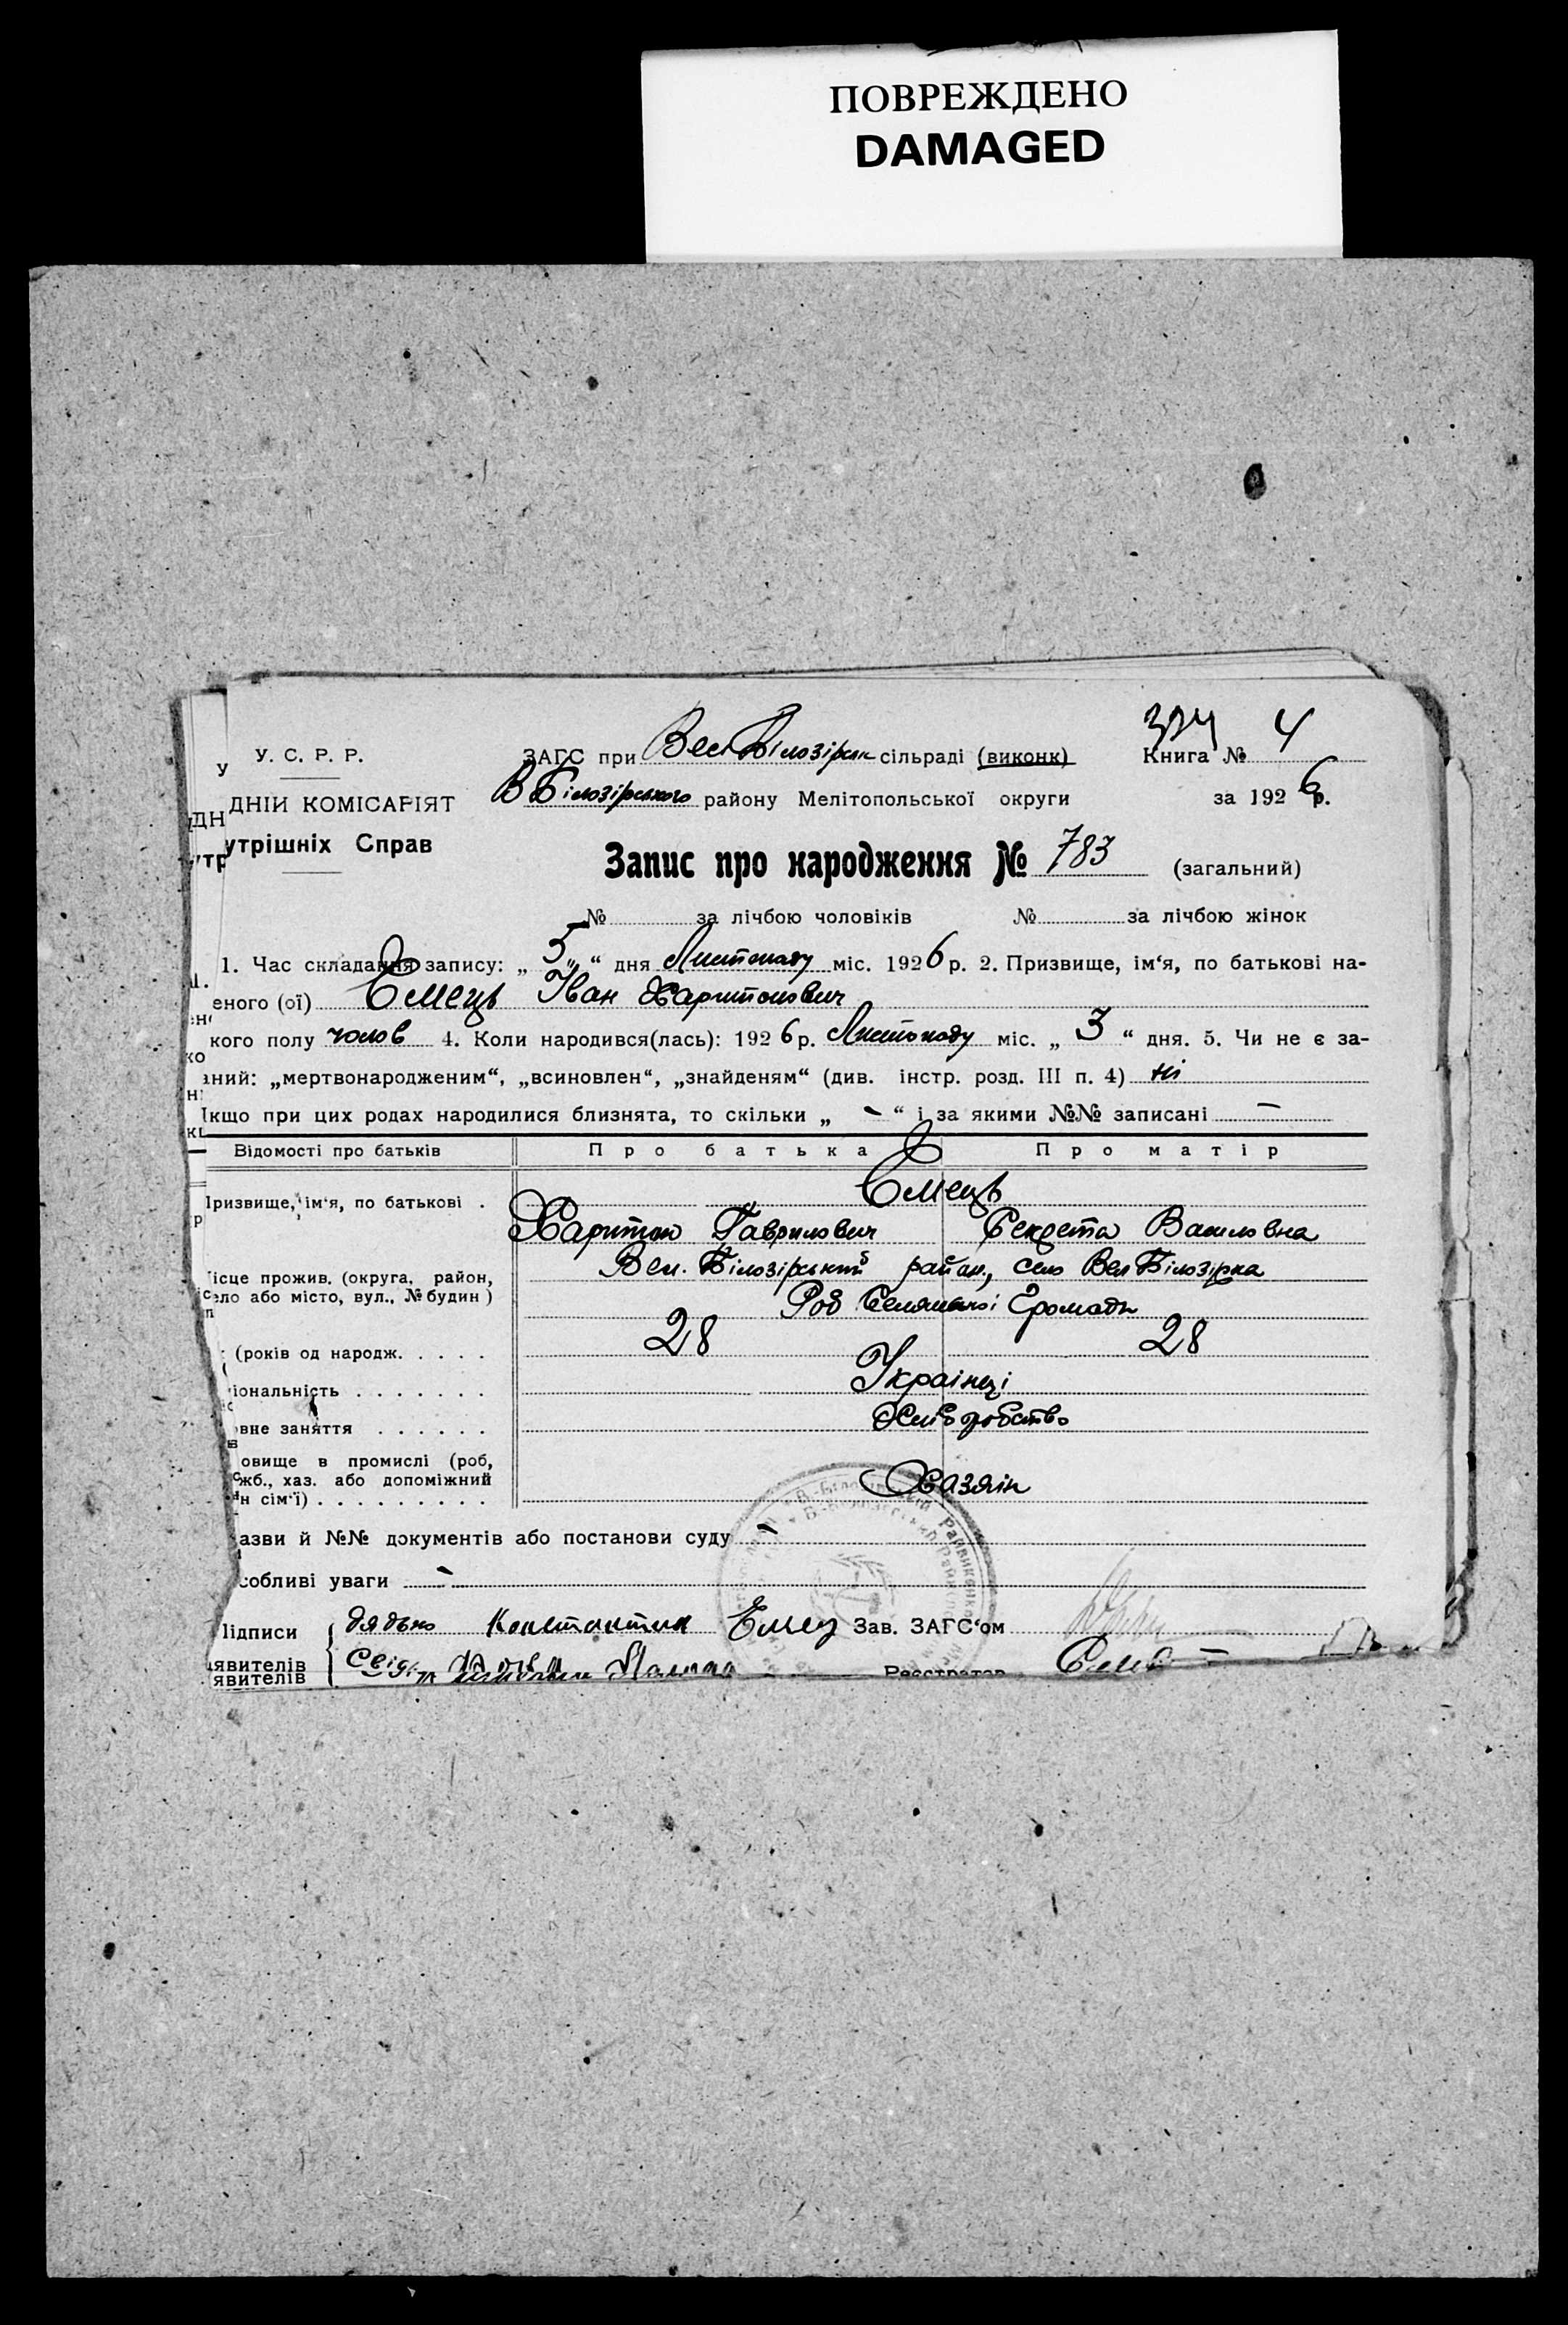 ПОВРЕЖДЕНО
DAMAGED
У. С. Р. Р.
ЗАГС при Вел Білозірск сільраді (виконк)
Книга № 4
ДНІЙ КОМІСАРІЯТ
В Білозірського району Мелітопольської округи
за 1926 р.
утрішніх Справ
Запис про народження № 783 (загальний)
№ за лічбою чоловіків № за лічбою жінок
1. Час складання запису: „ 5 “ дня Листопаду міс. 1926 р. 2. Призвище, ім‘я, по батькові на-
еного (ої) Ємець Іван Харитонович
кого полу чолов 4. Коли народився(лась): 1926 р. Листопаду міс. „ 3 “ дня. 5. Чи не є за-
аний: „мертвонародженим“, „всиновлен“, „знайденям“ (див. інстр. розд. III п. 4) ні
кщо при цих родах народилися близнята, то скільки „ - “ і за якими №№ записані —
Відомості про батьків Про батька Про матір
Призвище, ім‘я, по батькові . Ємець
Харитон Гаврилович Василовна
ісце прожив. (округа, район, Вел. Білозірський район, село Вел Білозірка
ело або місто, вул., № будин)
Громади
(років од народж. . . . . 28 28
іональність . . . . . . . Українці
вне заняття . . . . . . Хліборобство
овище в промислі (роб,
жб., хаз. або допоміжний Хазяїн
н сім‘ї) . . . . . . . . .
азви й №№ документів або постанови суду -
собливі уваги -
Підписи дядько Константин Ємец Зав. ЗАГС‘ом
явителів
явителів Реєстратор